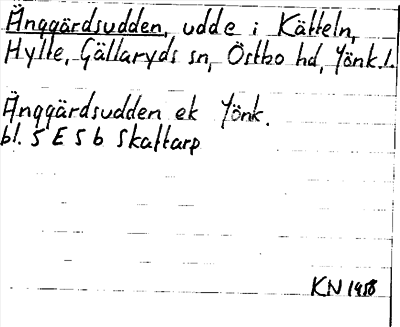 Änggärdsudden, udde i Kätteln,
Hylte, Gällaryds sn, Östbo hd, Jönk.l.
Änggärdsudden ek Jönk.
bl. 5 E 5 b Skaftarp
KN 1958